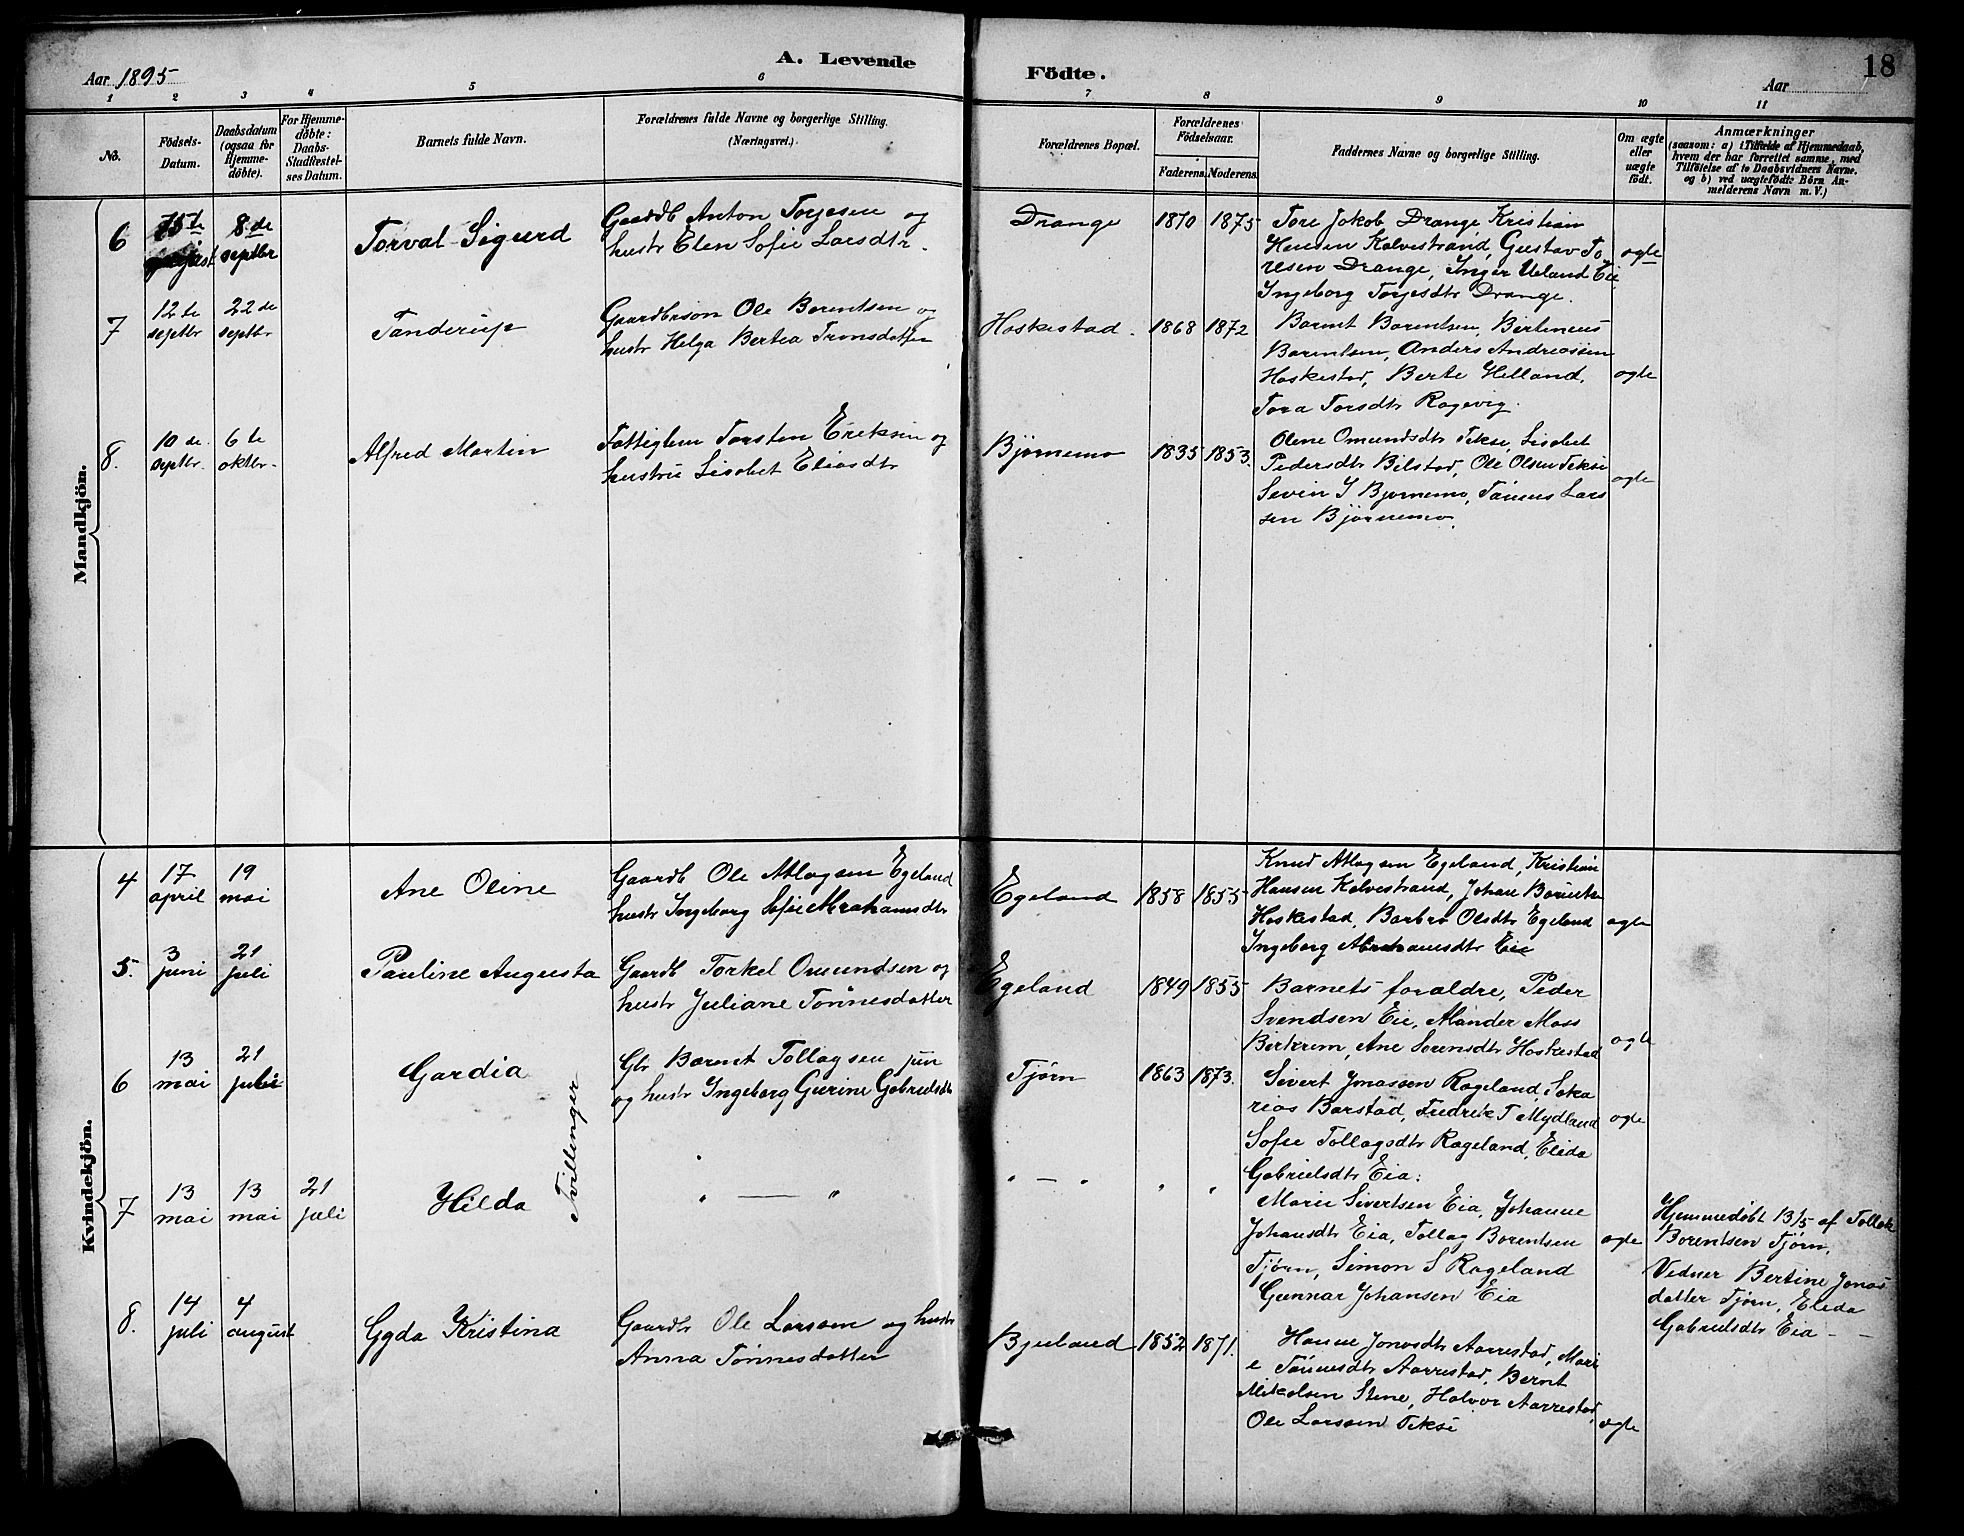 Aar 1895
A. Levende
Födte.
Aar
18
1 2 3 4 5 6 7 8 9 10 11
No.
Födsels-
Datum.
Daabsdatum
(ogsaa for
Hjemme-
döbte).
For Hjemme-
döbte:
Daabs-
Stadfestel-
ses Datum.
Barnets fulde Navn.
Forældrenes fulde Navne og borgerlige Stilling.
(Næringsvei).
Forældrenes Bopæl.
Forældrenes
Födselsaar.
Faderens. Moderens.
Faddernes Navne og borgerlige Stilling.
Om ægte
eller
uægte
födt.
Anmærkninger
(saasom: a) i Tilfælde af Hjemmedaab,
hvem der har forrettet samme, med
Tilföielse af to Daabsvidners Navne.
og b) ved uægtefödte Börn An-
melderens Navn m. V.)
Mandkjön.
6
8 de
septbr
Torval Sigurd
Gaardb Anton Torjesen og
hustr Elen Sofie Larsdtr.
Drange
1870 1875
Tore Jakob Drange Kristian
Hansen Kalvestrand, Gustav To-
resen Drange, Inger Ueland Eie
Ingeborg Torjesdtr Drange.
ægte
7
12 te
septbr
22 de
septbr
Tanderup
Gaardbrson Ole Berentsen og
hustr Helga Bertea Tronsdatter
Haskestad.
1868 1872
Barent Barentsen, Bertineus
Barentsen, Anders Andreassen
Haskestad, Berte Helland,
Tora Torsdtr Ragevig.
ægte
8.
10 de
septbr.
6 te
oktbr.
Alfred Martin
Fattiglem Torsten Eriksen og
hustru Lisabet Eliasdtr
Bjørnemo
1835 1853.
Olene Omundsdtr Tekse, Lisabet
Pedersdtr Bilstad, Ole Olsen Tekse
Sevin S Bjørnemo, Tønnes Lars
sen Bjørnemo.
ægte
Kvindekjön.
4
17
april
19
mai
Ane Oline
Gaardb Ole Atlagsen Egeland
hustr Ingeborg Sofie Abrahamsdtr
Egeland
1858 1855
Knud Atlagsen Egeland, Kristian
Hansen Kalvestrand, Johan
Haskestad, Barbro Olsdtr Egeland
Ingeborg Abrahamsdtr Eie
ægte
5.
3
juni
21
juli
Pauline Augusta
Gaardb Torkel Omundsen og
hustr Juliane Tønnesdatter
Egeland
1849 1855
Barnets forældre, Peder
Svendsen Eie, Mander Moss
Birkrem, Ane Sørensdtr Haskestad
ægte
6
13
mai
21
juli
Gardia
Gbr Barent Tollagsen jun
og hustr Ingeborg Gurine Gabrielsdtr
Tjørn
1863 1873.
Sivert Jonassen Rageland, Saka
rias Barstad, Fredrik T Mydland
Sofie Tollagsdtr Rageland, Elida
Gabrielsdtr Eia.
ægte
Tvillinger
7
13
mai
13
mai
21
juli
Hilda
" — "
" — "
" "
Marie Sivertsen Eia, Johanne
Johansdtr Eia, Tollag Berentsen
Tjørn, Simon S Rageland
Gunnar Johansen Eia
ægte
Hjemmedøbt 13/5 af Tollak
Berentsen Tjørn.
Vidner Bertine Jonas
datter Tjørn, Elida
Gabrielsdtr Eia –
8.
14
juli
4
august
Gyda Kristina
Gaardbr Ole Larssen og hustr
Anna Tønnesdatter
Bjuland
1852 1871.
Hanne Jonasdtr Aarrestad, Mari
e Tønnesdtr Aarrestad, Bernt
Mikalsen Stene, Halvor Aarrestad,
Ole Larssen Tekse
ægte